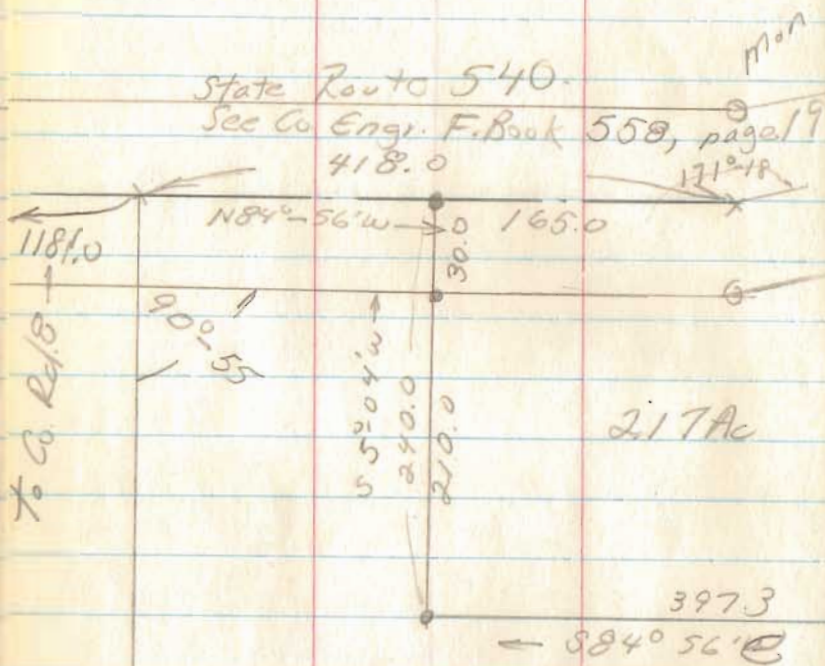 mon
State Route 540.
See Co. Engr. F. Book 558, page 19
418.0
171°-18
N84°-56'W
165.0
1181.0
30.0
To Co. Rd. 8
90°-55
S 5°04'W
240.0
210.0
217Ac
397.3
S84° 56'E